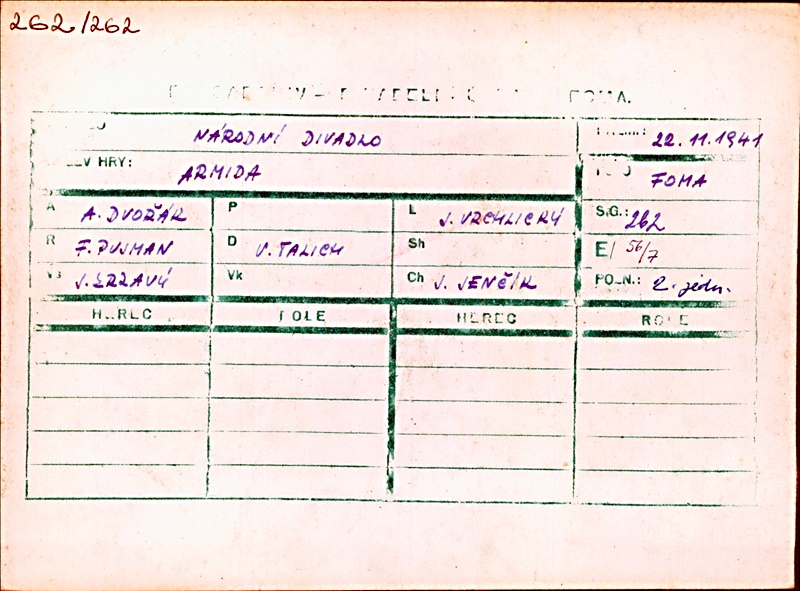 262/262
FOMA.
NÁRODNÍ DIVADLO 22.11.1941
HRY: ARMIDA FOMA
A A. DVOŘÁK P L J. VRCHLICKÝ SIG.: 262
R F. PUJMAN D V. TALICH Sh E/ 56/7
J. ZRZAVÝ Vk Ch J. JENČÍK POZN.: 2. jedn.
HEREC ROLE HEREC ROLE